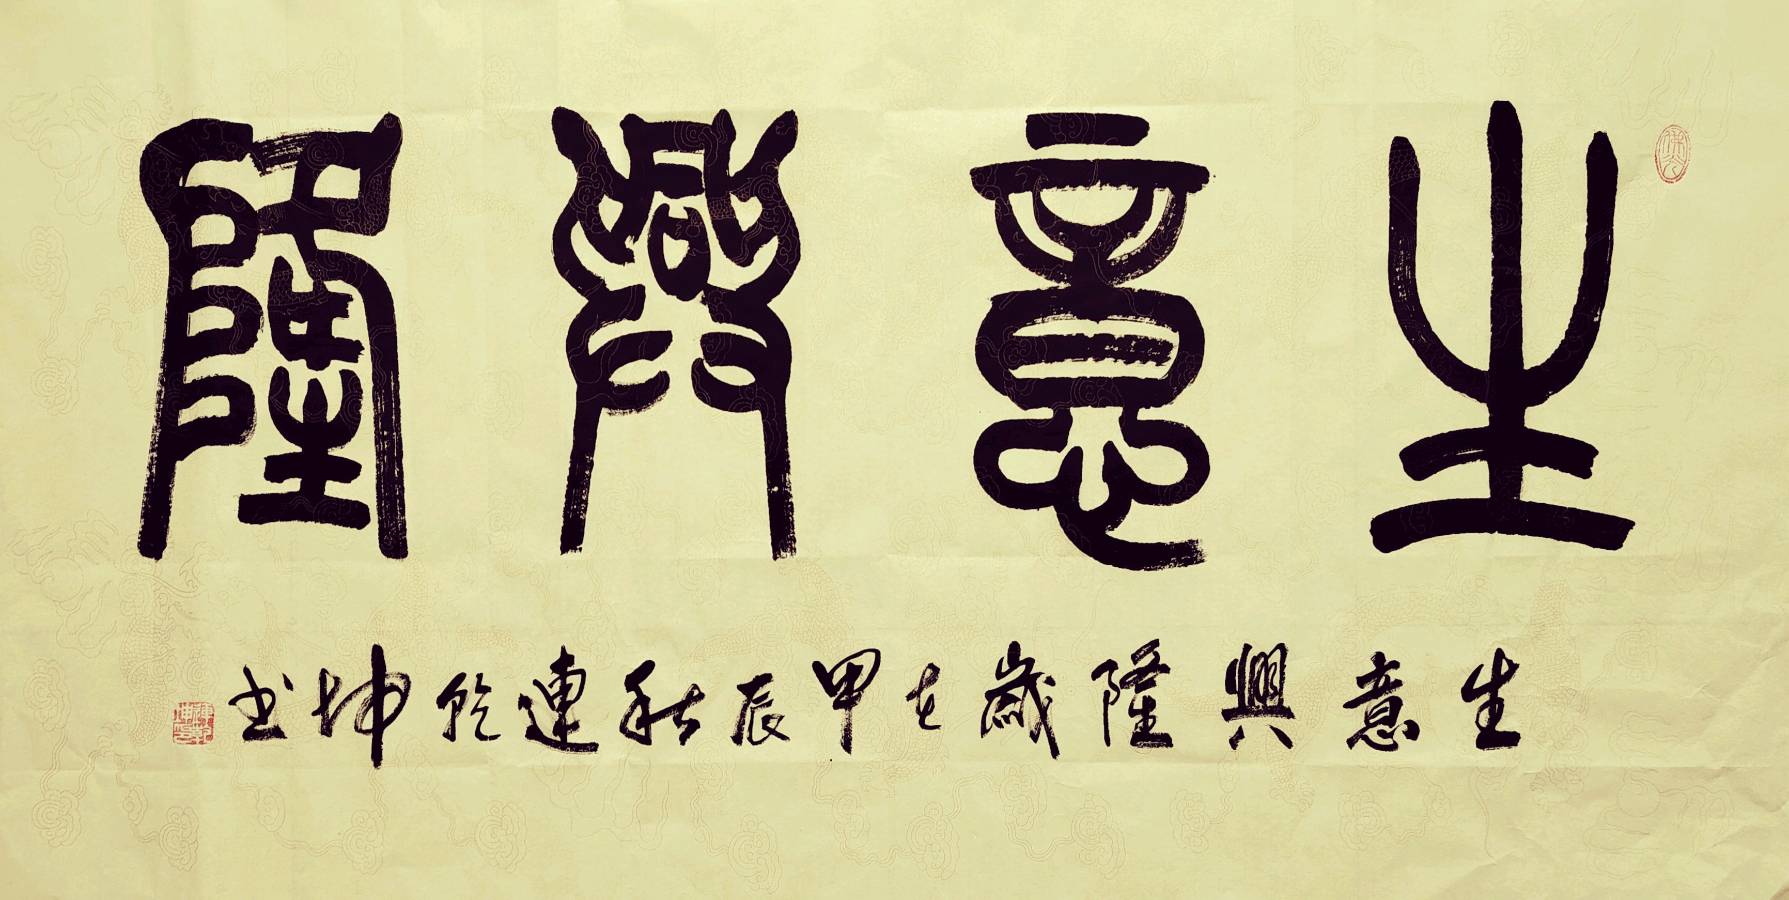 生意興隆
生意興隆歲在甲辰秋連乾坤书